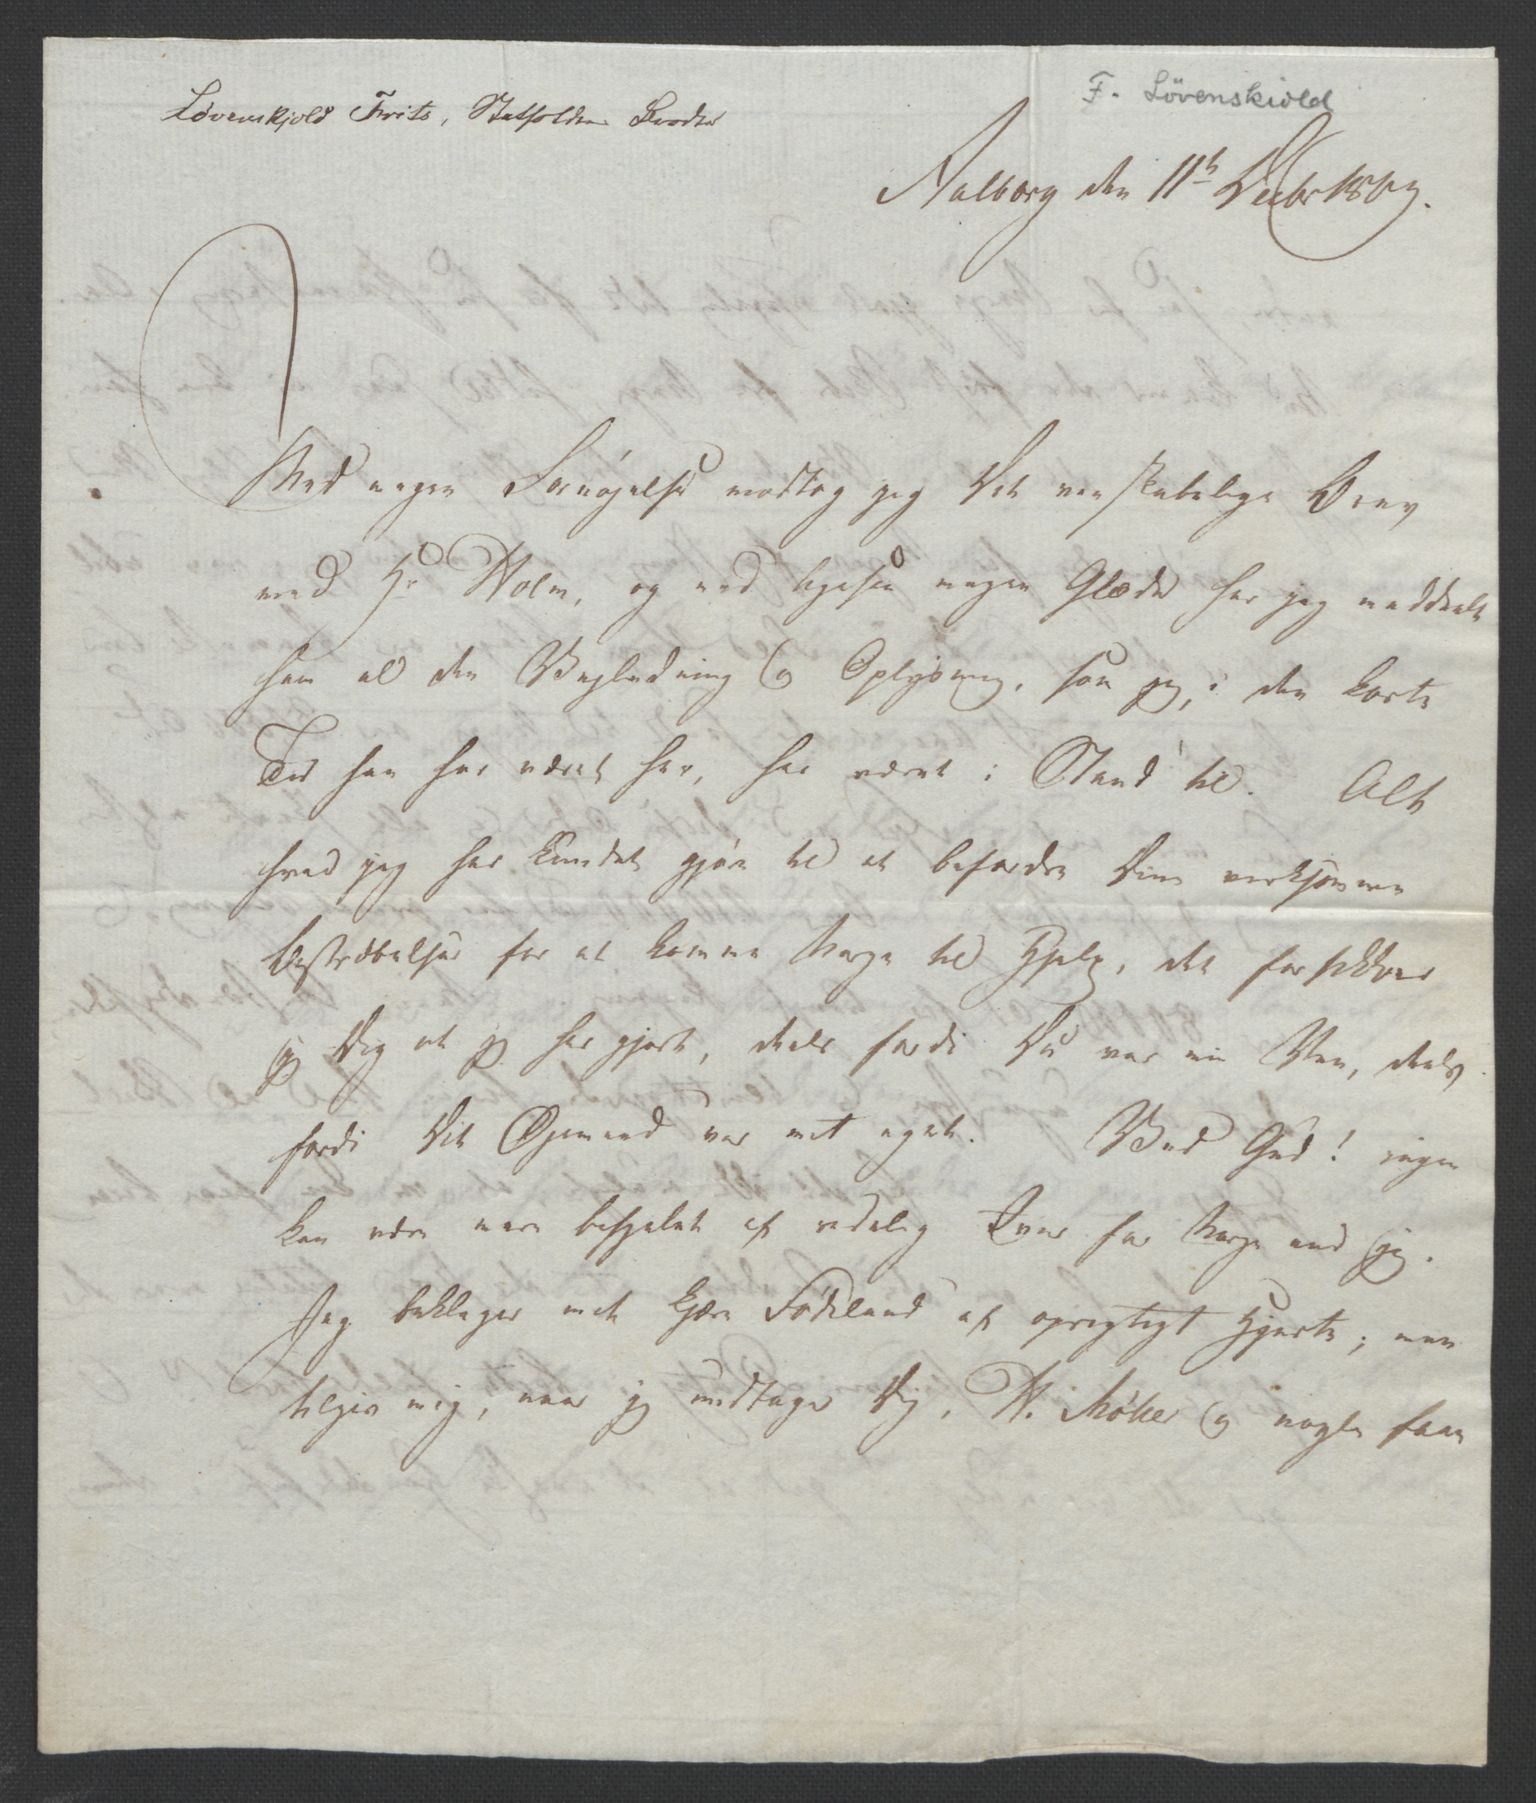 F. Lövenskiold
Lövenskjold Frits, Statholder Broder
Aalborg den 11t Decbr 1807.
Med megen Fornøjelse modtog jeg Dit venskabelige Brev
med Hr Holm, og med ligesaa megen Glæde har jeg meddeelt
ham al den Vejledning og Oplysning, som jeg, i den korte
Tid han har været her, har været i Stand til. Alt
hvad jeg har kundet gjøre til at befordre Dine virksomme
Bestræbelser for at komme Norge til Hjelp, det forsikkrer
jeg Dig at jeg har gjort, deels fordi Du var min Ven, deels
fordi Dit Øjemeed var mit eget. Ved Gud! ingen
kan være mere besjælet af redelig Iver for Norge end jeg.
Jeg beklager mit kjære Fødeland af oprigtigt Hjerte; men
tilgiv mig, naar jeg undtager Dig, N. Møller og nogle faae